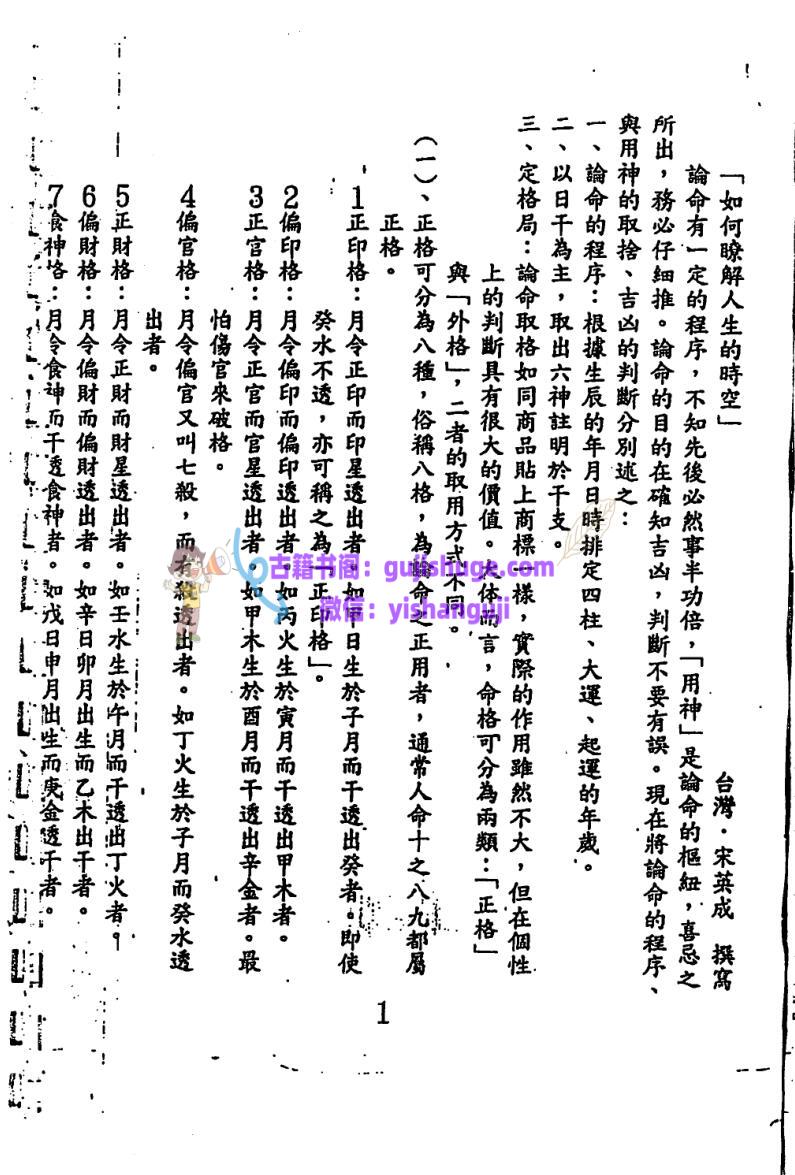 「如何瞭解人生的時空」
台灣·宋英成　撰寫
論命有一定的程序，不知先後必然事半功倍，「用神」是論命的樞紐，喜忌之
所出，務必仔細推。論命的目的在確知吉凶，判斷不要有誤。現在將論命的程序、
與用神的取捨、吉凶的判斷分別述之：
一、論命的程序：根據生辰的年月日時排定四柱、大運、起運的年歲。
二、以日干為主，取出六神註明於干支。
三、定格局：論命取格如同商品貼上商標一樣，實際的作用雖然不大，但在個性
上的判斷具有很大的價值。大体而言，命格可分為兩類：「正格」
與「外格」，二者的取用方式不同。
（一）、正格可分為八種，俗稱八格，為論命之正用者，通常人命十之八九都屬
正格。
1正印格：月令正印而印星透出者。如甲日生於子月而干透出癸者。即使
癸水不透，亦可稱之為「正印格」。
2偏印格：月令偏印而偏印透出者。如丙火生於寅月而干透出甲木者。
3正官格：月令正官而官星透出者。如甲木生於酉月而干透出辛金者。最
怕傷官來破格。
4偏官格：月令偏官又叫七殺，而有殺透出者。如丁火生於子月而癸水透
出者。
5正財格：月令正財而財星透出者。如壬水生於午月而干透出丁火者。
6偏財格：月令偏財而偏財透出者。如辛日卯月出生而乙木出干者。
7食神格：月令食神而干透食神者。如戊日申月出生而庚金透干者。
1
古籍书阁：gujishuge.com
微信：yishanguji